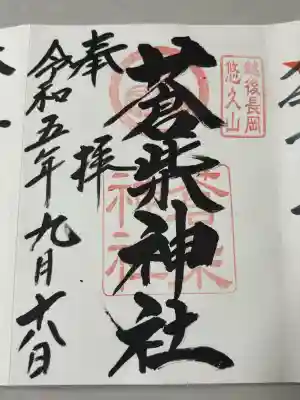 越後長岡
悠久山
奉拝
蒼柴神社
蒼柴
神社
令和五年九月十八日